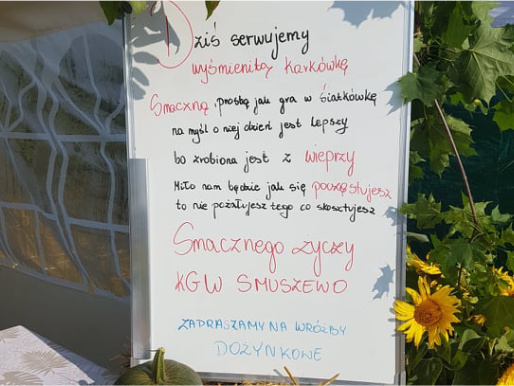 Dziś serwujemy
wyśmienitą karkówkę
Smaczną, prostą jak gra w siatkówkę
na myśl o niej dzień jest lepszy
bo zrobiona jest z wieprzy
Miło nam będzie jak się poczęstujesz
to nie pożałujesz tego co skosztujesz
Smacznego życzy
KGW SMUSZEWO
ZAPRASZAMY NA WRÓŻBY
DOŻYNKOWE